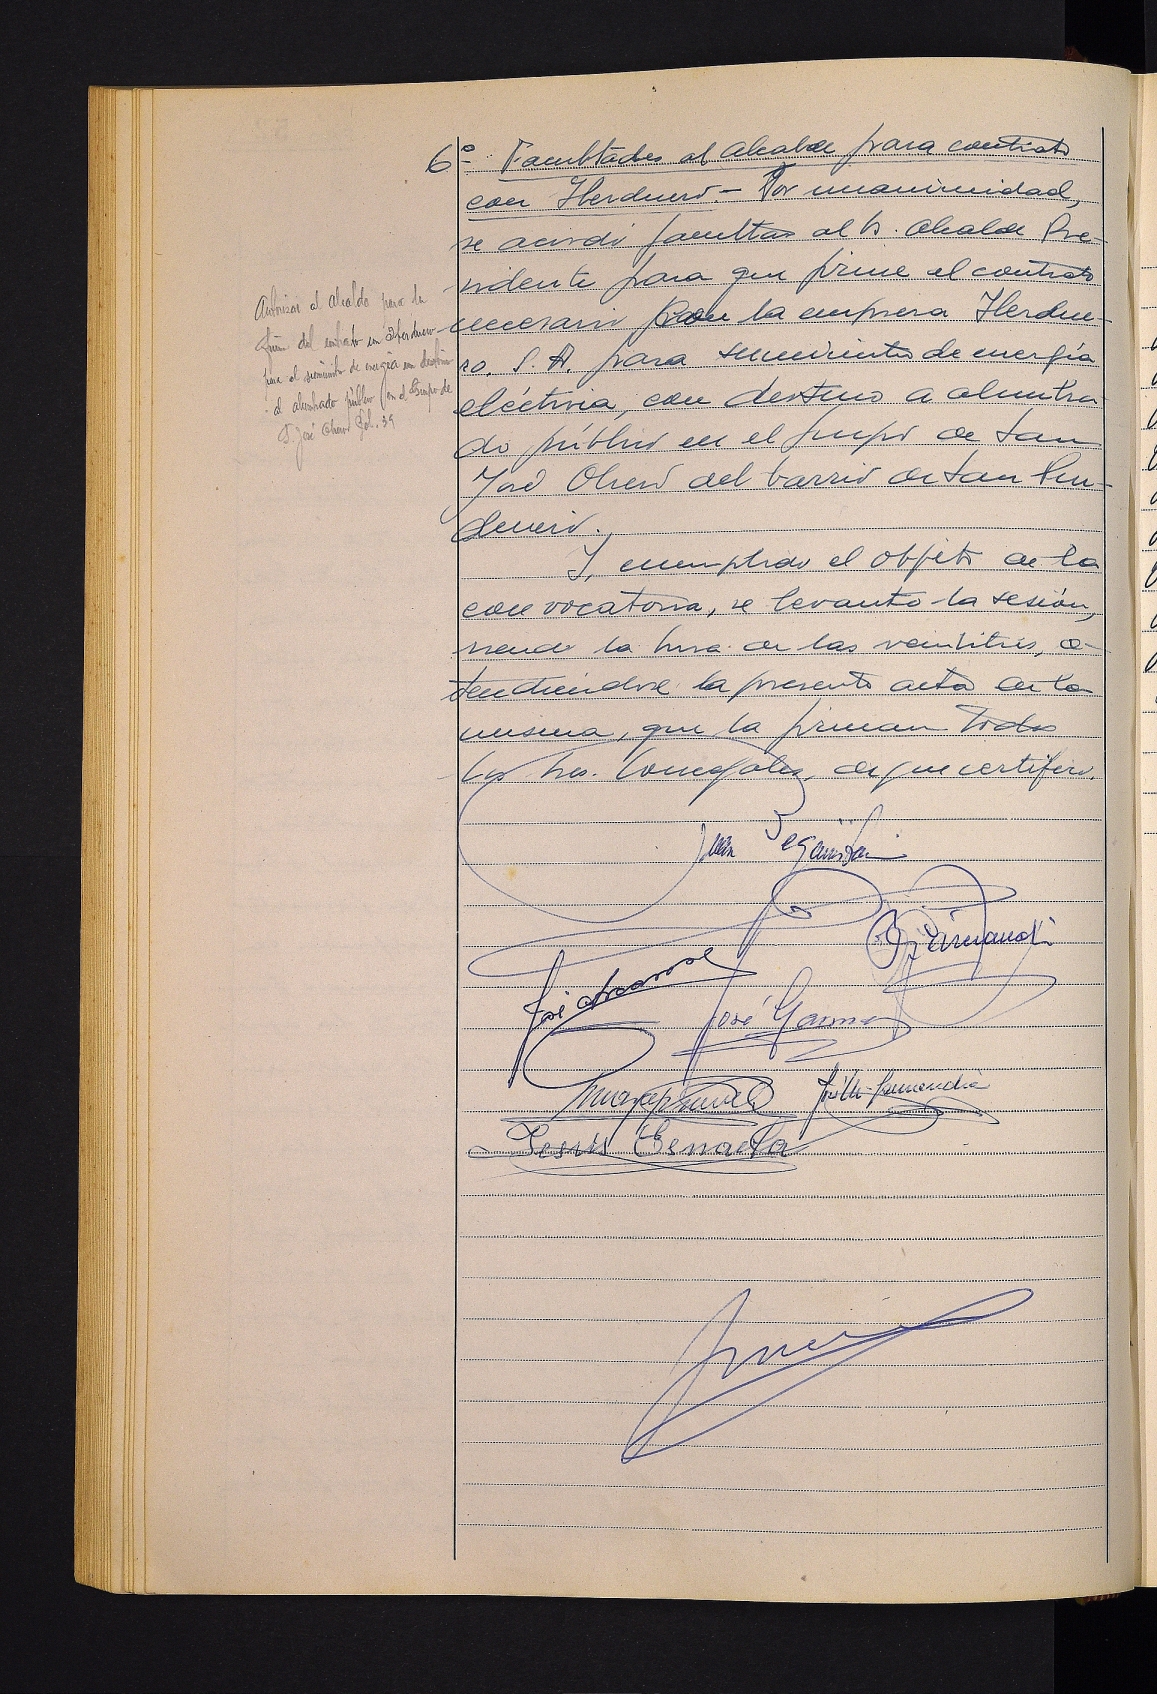 6º- Facultades al Alcalde para contrato
con Iberduero.- Por unanimidad,
se acordó facultar al Sr. Alcalde Pre-
sidente para que firme el contrato
necesario con la empresa Iberdue-
ro, S.A. para suministro de energía
eléctrica, con destino a alumbra-
do público en el grupo de San
José Obrero del barrio de San Pru-
dencio.
Y, cumplido el objeto de la
convocatoria, se levantó la sesión,
siendo la hora de las veintitrés, ex-
tendiéndose la presente acta de la
misma, que la firman todos
los Sres. Concejales, de que certifico.
Autorizar al Alcalde para la
firma del contrato con Iberduero
para el suministro de energía con destino
al alumbrado público en el Grupo de
S. José Obrero Fol. 39
Juan
José
José Garma
Jesús